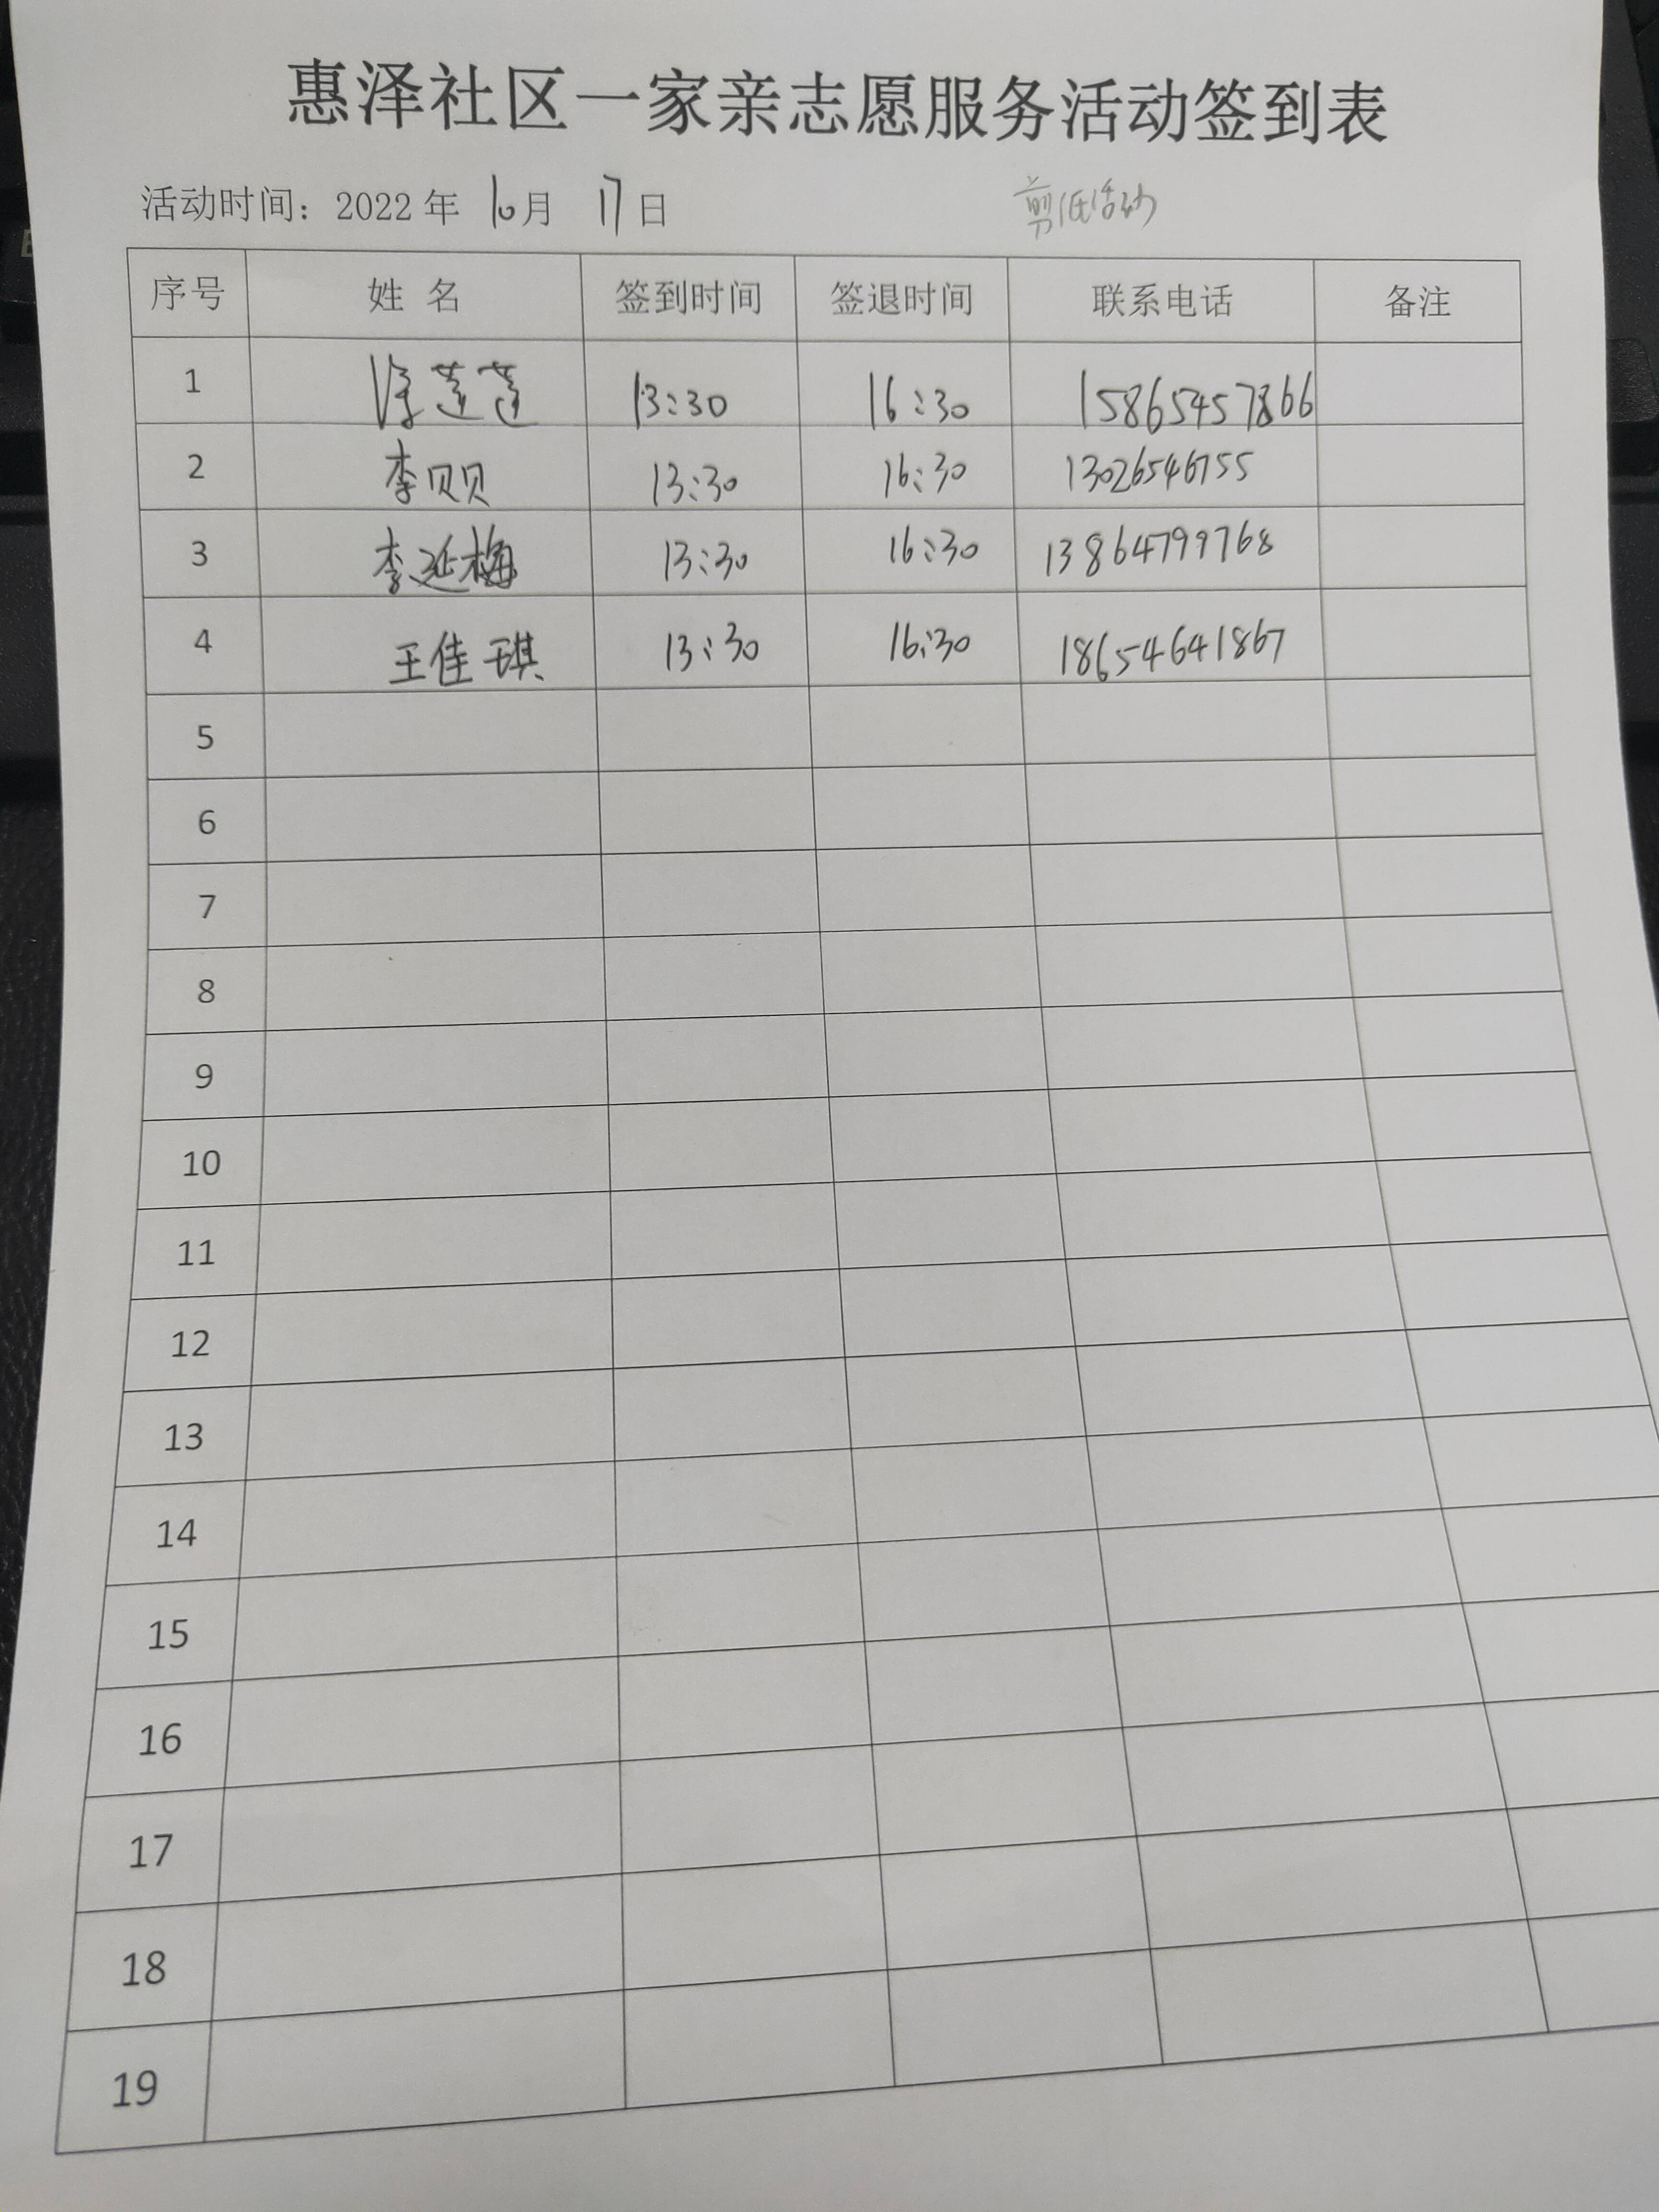 惠泽社区一家亲志愿服务活动签到表
活动时间：2022 年 10月 17日 剪纸活动
序号 姓 名 签到时间 签退时间 联系电话 备注
1 徐莲莲 13:30 16:30 15865457866
2 李贝贝 13:30 16:30 13026546755
3 李延梅 13:30 16:30 13864799768
4 王佳琪 13:30 16:30 18654641867
5
6
7
8
9
10
11
12
13
14
15
16
17
18
19